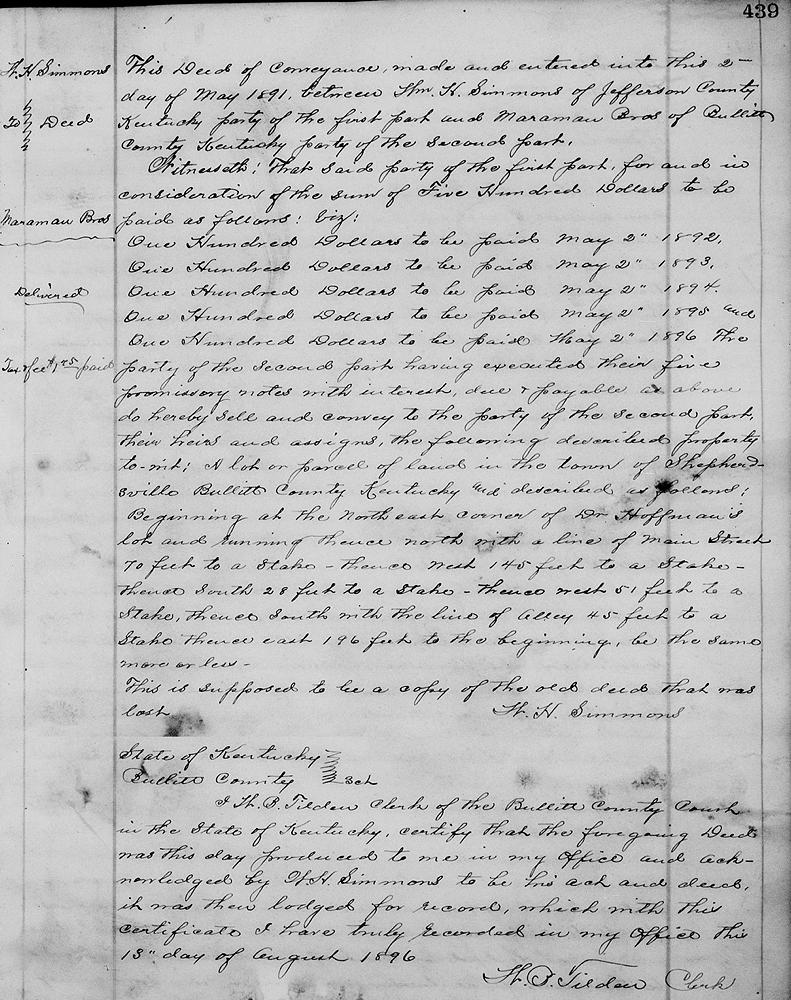 439
W. H. Simmons
To } Deed
Maraman Bros
Delivered
Tax & fee $1.75 paid
This Deed of Conveyance, made and entered into this 2"
day of May 1891, between Wm. H. Simmons of Jefferson County
Kentucky party of the first part and Maraman Bros of Bullitt
County Kentucky party of the second part.
Witnesseth: That said party of the first part, for and in
consideration of the sum of Five Hundred Dollars to be
paid as follows: viz:
One Hundred Dollars to be paid May 2" 1892,
One Hundred Dollars to be paid May 2" 1893,
One Hundred Dollars to be paid May 2" 1894.
One Hundred Dollars to be paid May 2" 1895 and
One Hundred Dollars to be paid May 2" 1896 The
party of the second part having executed their five
promissory notes with interest, due & payable as above
do hereby sell and convey to the party of the second part,
their heirs and assigns, the following described property
to-wit: A lot or parcel of land in the town of Shepherd-
sville Bullitt County Kentucky and described as follows:
Beginning at the North east corner of Dr Hoffman's
lot and running thence north with a line of Main Street
70 feet to a Stake - thence West 145 feet to a Stake -
thence South 28 feet to a Stake - thence west 51 feet to a
Stake, thence South with the line of Alley 45 feet to a
Stake thence east 196 feet to the beginning, be the same
more or less -
This is supposed to be a copy of the old deed that was
lost
W. H. Simmons
State of Kentucky
Bullitt County } Sct
I W. P. Tilden Clerk of the Bullitt County Court
in the State of Kentucky, certify that the foregoing Deed
was this day produced to me in my Office and ack-
nowledged by W. H. Simmons to be his act and deed,
it was then lodged for record, which with this
certificate I have truly recorded in my Office this
13" day of August 1896
W. P. Tilden Clerk